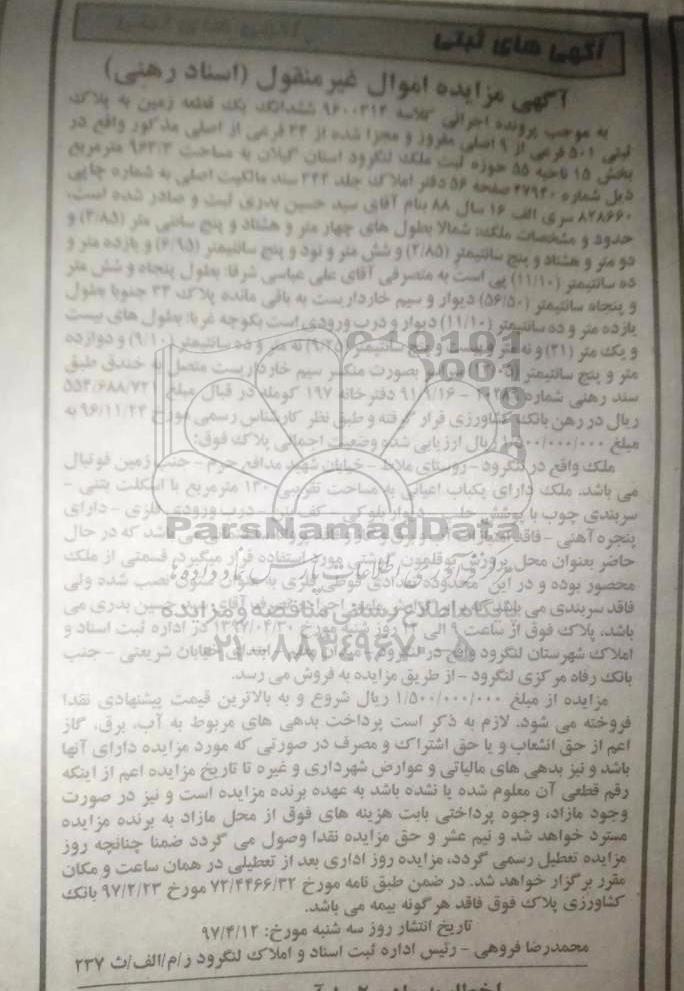 آگهی های ثبتی
آگهی مزایده اموال غیر منقول (اسناد رهنی)
به موجب پرونده اجرائی کلاسه ۹۶۰۰۳۱۴ ششدانگ یک قطعه زمین به پلاک
ثبتی ۵۰۱ فرعی از ۹ اصلی مفروز و مجزا شده از ۳۴ فرعی از اصلی مذکور واقع در
بخش ۱۵ ناحیه ۵۵ حوزه ثبت ملک لنگرود استان گیلان به مساحت ۹۶۳/۳ مترمربع
ذیل شماره ۴۷۹۴۰ صفحه ۵۶ دفتر املاک جلد ۲۴۲ سند مالکیت اصلی به شماره چاپی
۸۲۸۶۶۰ سری الف ۱۶ سال ۸۸ بنام آقای سید حسین بدری ثبت و صادر شده است.
حدود و مشخصات ملک: شمالا بطول های چهار متر و هشتاد و پنج سانتی متر و
دو متر و هشتاد و پنج سانتیمتر (۲/۸۵) و شش متر و نود و پنج سانتیمتر (۶/۹۵) و یازده متر و
ده سانتیمتر (۱۱/۱۰) پی است به متصرفی آقای علی عباسی شرقا: بطول پنجاه و شش متر
و پنجاه سانتیمتر (۵۶/۵۰) دیوار و سیم خارداریست به باقی مانده پلاک ۳۴ جنوبا بطول
یازده متر و ده سانتیمتر (۱۱/۱۰) دیوار و درب ورودی است بکوچه غربا: بطول های بیست
و یک متر (۲۱) و نه متر و بیست و پنج سانتیمتر (۹/۲۵) نه متر و ده سانتیمتر (۹/۱۰) و دوازده
متر و پنج سانتیمتر بصورت منکسر سیم خارداریست متصل به خندق طبق
سند رهنی شماره ۹۱/۹/۱۶ دفترخانه ۱۹۷ کومله در قبال مبلغ ۵۵۴/۶۸۸/۷۲۱
ریال در رهن بانک کشاورزی قرار گرفته و طبق نظر کارشناس رسمی مورخ ۹۶/۱۱/۲۴ به
مبلغ ۱/۵۰۰/۰۰۰/۰۰۰ ریال ارزیابی شده وضعیت اجمالی پلاک فوق:
ملک واقع در لنگرود - روستای ملاط - خیابان شهید مدافع حرم - جنب زمین فوتبال
می باشد. ملک دارای یکباب اعیانی به مساحت تقریبی ۱۳۰ مترمربع با اسکلت بتنی -
سربندی چوب با پوشش حلب - دیوار بلوکی - کف بتن - درب ورودی فلزی - دارای
پنجره آهنی - فاقد که در حال
حاضر بعنوان محل پرورش بوقلمون گوشتی مورد استفاده قرار میگیرد. قسمتی از ملک
محصور بوده و در این محدوده تعدادی قوطی فلزی به عنوان ستون نصب شده ولی
فاقد سربندی می باشد بدری می
باشد. پلاک فوق از ساعت ۹ الی ۱۲ روز شنبه مورخ ۱۳۹۷/۰۴/۳۰ در اداره ثبت اسناد و
املاک شهرستان لنگرود واقع در لنگرود ابتدای خیابان شریعتی - جنب
بانک رفاه مرکزی لنگرود - از طریق مزایده به فروش می رسد.
مزایده از مبلغ ۱/۵۰۰/۰۰۰/۰۰۰ ریال شروع و به بالاترین قیمت پیشنهادی نقدا
فروخته می شود. لازم به ذکر است پرداخت بدهی های مربوط به آب، برق، گاز
اعم از حق انشعاب و یا حق اشتراک و مصرف در صورتی که مورد مزایده دارای آنها
باشد و نیز بدهی های مالیاتی و عوارض شهرداری و غیره تا تاریخ مزایده اعم از اینکه
رقم قطعی آن معلوم شده یا نشده باشد به عهده برنده مزایده است و نیز در صورت
وجود مازاد، وجوه پرداختی بابت هزینه های فوق از محل مازاد به برنده مزایده
مسترد خواهد شد و نیم عشر و حق مزایده نقدا وصول می گردد ضمنا چنانچه روز
مزایده تعطیل رسمی گردد، مزایده روز اداری بعد از تعطیلی در همان ساعت و مکان
مقرر برگزار خواهد شد. در ضمن طبق نامه مورخ ۷۲/۴۴۶۶/۳۲ مورخ ۹۷/۲/۲۳ بانک
کشاورزی پلاک فوق فاقد هرگونه بیمه می باشد.
تاریخ انتشار روز سه شنبه مورخ: ۹۷/۴/۱۲
محمدرضا فروهی - رئیس اداره ثبت اسناد و املاک لنگرود ر/م/الف/ث ۲۳۷
ParsNamadData
پایگاه اطلاع رسانی مناقصه و مزایده
۰۲۱-۸۸۳۴۹۶۷۰-۵